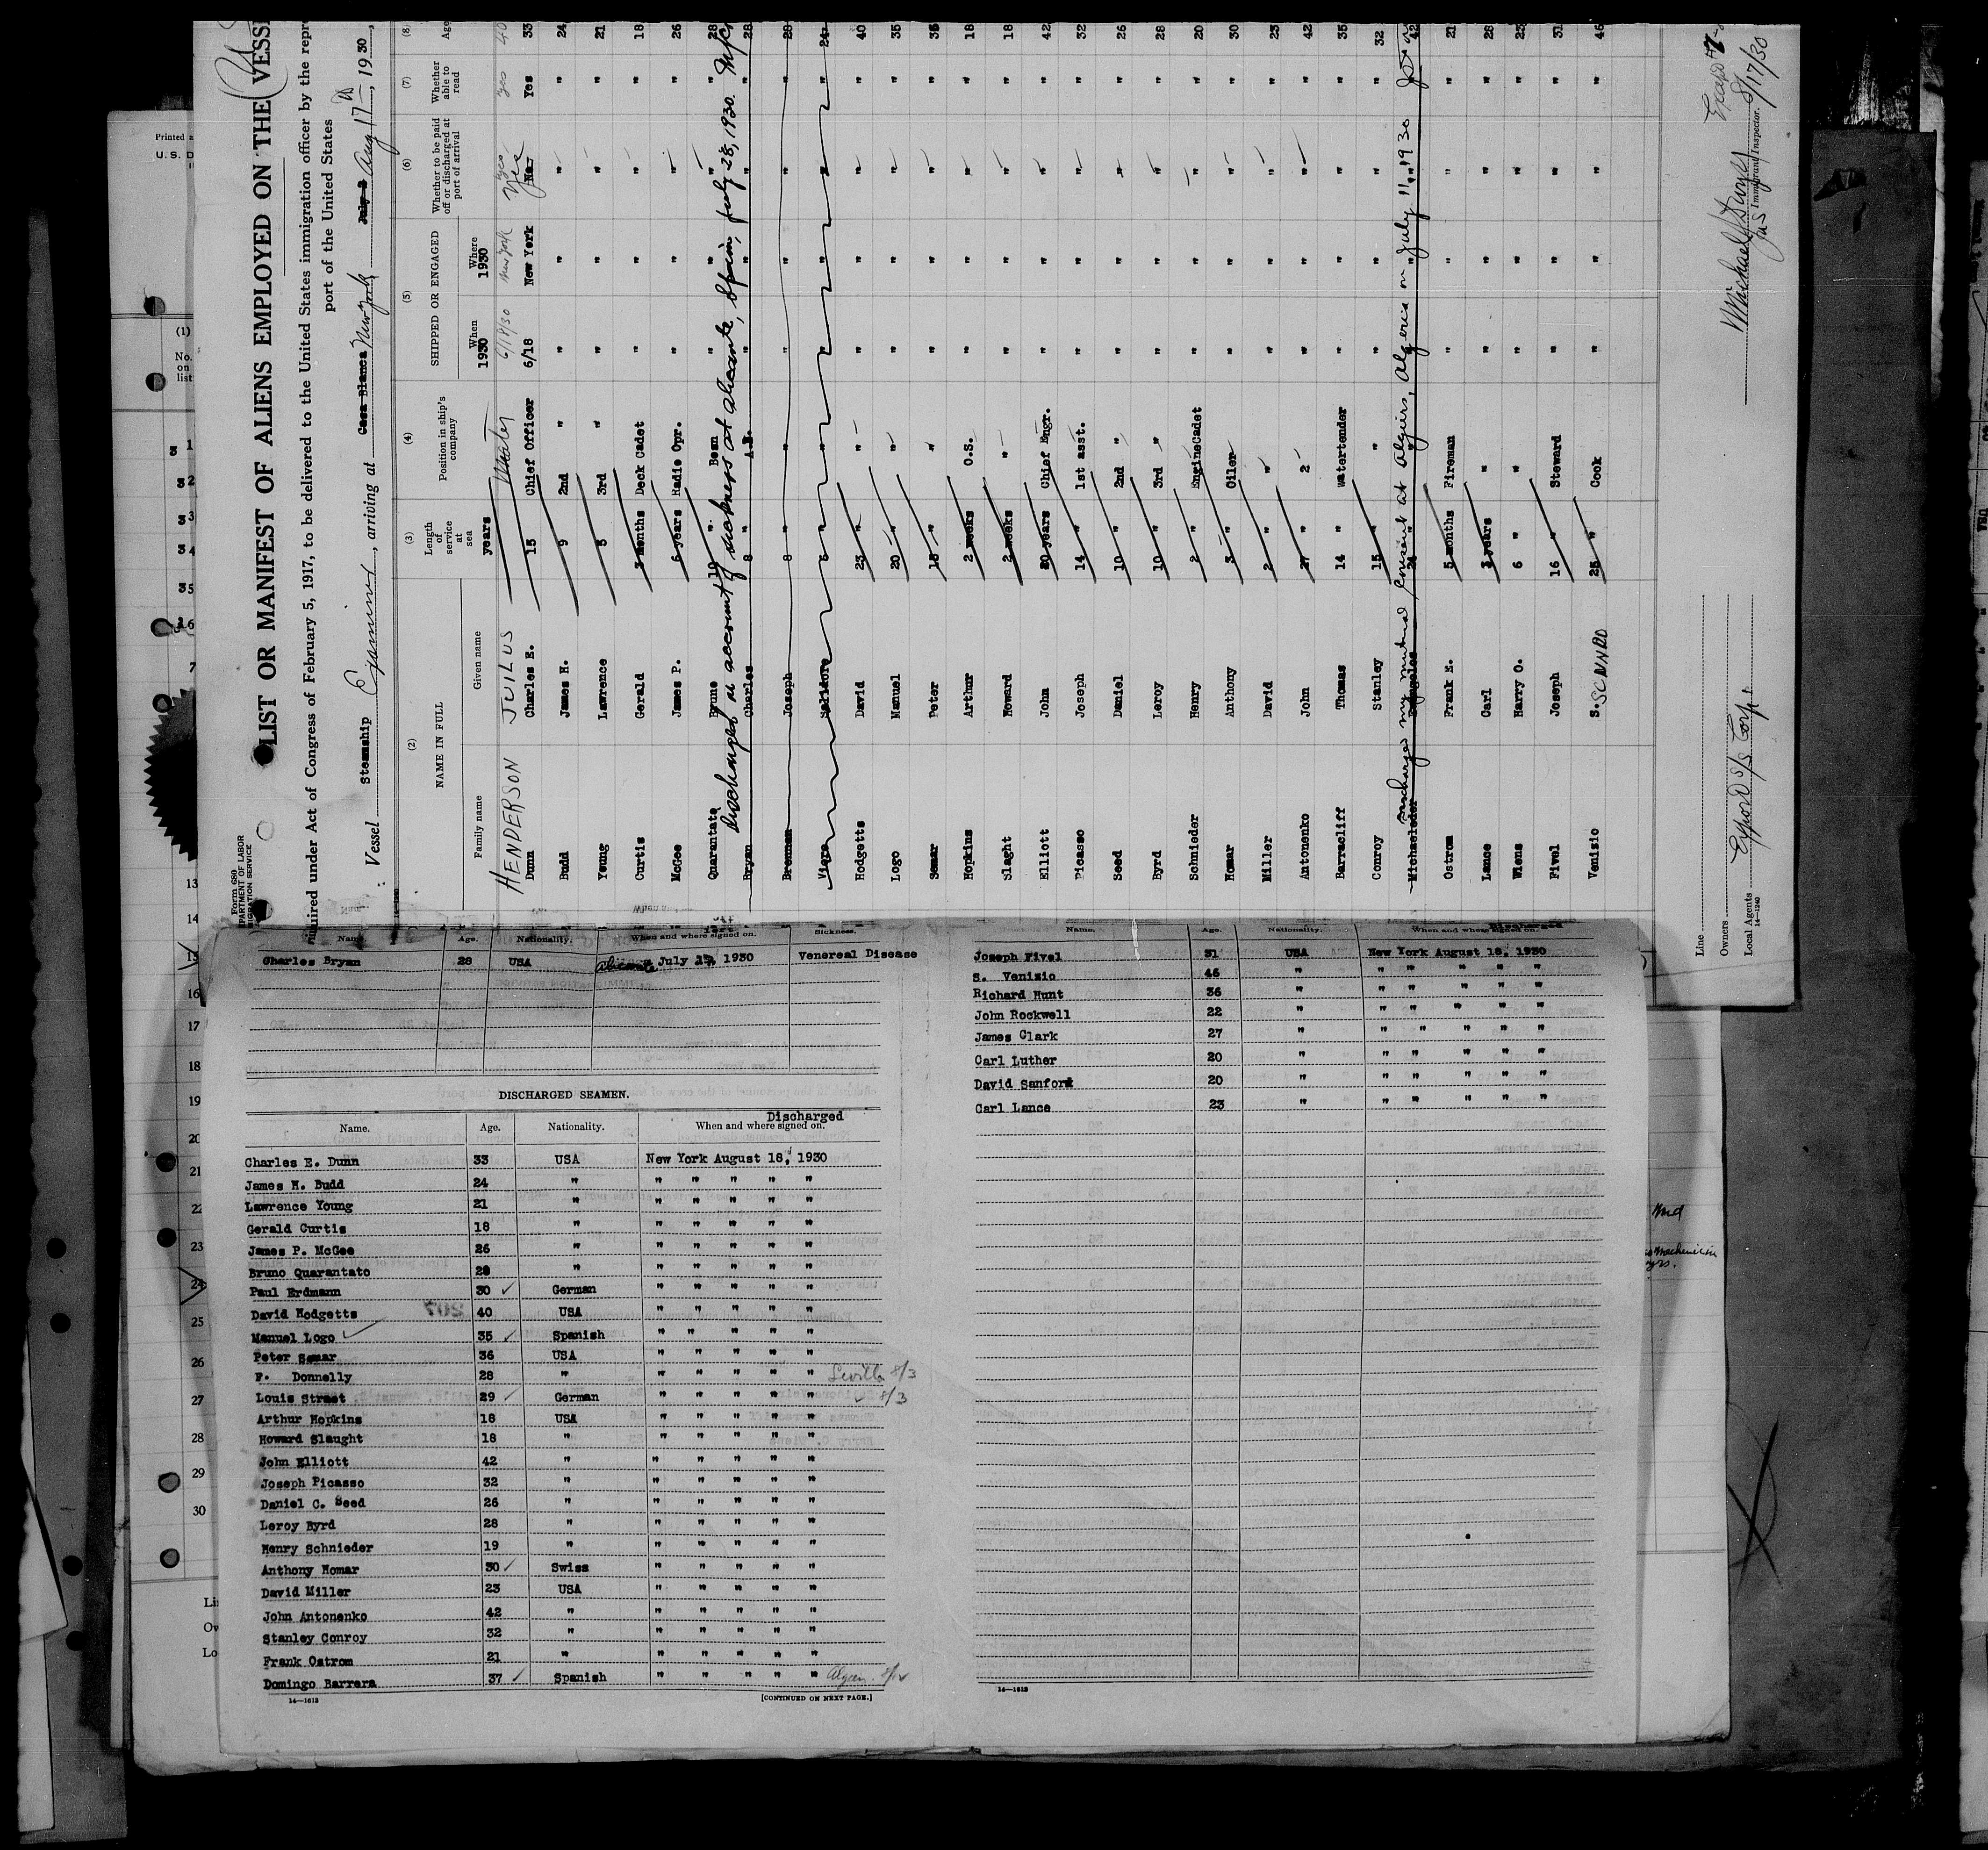 Form 680
LIST OR MANIFEST OF ALIENS EMPLOYED ON THE VESS
quired under Act of Congress of February 5, 1917, to be delivered to the United States immigration officer by the repr
port of the United States
Vessel Steamship Examiner, arriving at Casa Blanca New York, July 2 Aug 17th, 1930,
(2) (3) (4) (5) (6) (7) (8)
NAME IN FULL Length of service at sea Position in ship's company SHIPPED OR ENGAGED Whether to be paid off or discharged at port of arrival Whether able to read Ag
Family name Given name years When 1930 Where 1930
HENDERSON JUILUS Master 6/18/30 New York yes yes 40
Dunn Charles E. 15 Chief Officer 6/18 New York No Yes Yes 33
Budd James H. 9 2nd " " " " " 24
Young Lawrence 5 3rd " " " " " 21
Curtis Gerald 3 months Deck Cadet " " " " 18
McGee James P. 6 years Radio Opr. " " " " 26
Quarantata Bruno 10 " Bosn " " " " 28
Discharged on account of sickness at Alicante, Spain, July 28, 1930.
Bryan Charles 8 " A.B. " " " " 28
Brennan Joseph 8 " " " " " " 28
Viera 6 " " " " " " 24
Hodgetts David 23 " " " " " " 40
Logo Manuel 20 " " " " " " 35
Semar Peter 18 " " " " " " 36
Hopkins Arthur 2 weeks O.S. " " " " 18
Slaght Howard 2 weeks " " " " " 18
Elliott John 20 years Chief Engr. " " " " 42
Picasso Joseph 14 " 1st asst. " " " " 32
Seed Daniel 10 " 2nd " " " " " 26
Byrd Leroy 10 " 3rd " " " " " 28
Schnieder Henry 2 " EngineCadet " " " " 20
Homar Anthony 3 " Oiler " " " " 30
Miller David 2 " " " " " " 23
Antonenko John 27 " " " " " " 42
Barracliff Thomas 14 " Watertender " " " " 35
Conroy Stanley 15 " " " " " " 32
Discharged my mutual consent at Algiers, Algeria on July 11, 1930
Michaeleder " " " " " " 42
Ostrom Frank E. 5 months Fireman " " " " 21
Lance Carl 3 years " " " " " 28
Wiens Harry O. 6 " " " " " " 23
Fivel Joseph 16 " Steward " " " " 31
Venizio S. 25 " Cook " " " " 46
Line
Owners Export S/S Corp.
Local Agents
14—1240
Immigrant Inspector.
8/17/30
Printed a
U. S. D
(1)
No. on list
13
14
15
16
17
18
19
20
21
22
23
24
25
26
27
28
29
30
Name. Age. Nationality. When and where signed on. Sickness.
Charles Bryan 28 USA Alicante July 1930 Venereal Disease
DISCHARGED SEAMEN.
Discharged
Name. Age. Nationality. When and where signed on.
Charles E. Dunn 33 USA New York August 18, 1930
James H. Budd 24 " " " " " "
Lawrence Young 21 " " " " " "
Gerald Curtis 18 " " " " " "
James P. McGee 26 " " " " " "
Bruno Quarantato 28 " " " " " "
Paul Erdmann 30 German " " " " "
David Hodgetts 40 USA " " " " "
Manuel Logo 35 Spanish " " " " "
Peter Semar 36 USA " " " " "
F. Donnelly 28 " " " " " " Seville 8/3
Louis Straet 29 German " " " " " 8/3
Arthur Hopkins 18 USA " " " " "
Howard Slaught 18 " " " " " "
John Elliott 42 " " " " " "
Joseph Picasso 32 " " " " " "
Daniel C. Seed 26 " " " " " "
Leroy Byrd 28 " " " " " "
Henry Schnieder 19 " " " " " "
Anthony Homar 30 Swiss " " " " "
David Miller 23 USA " " " " "
John Antonenko 42 " " " " " "
Stanley Conroy 32 " " " " " "
Frank Ostrom 21 " " " " " "
Domingo Barrera 37 Spanish " " " " "
14—1613 [CONTINUED ON NEXT PAGE.]
Discharged
Name. Age. Nationality. When and where signed on.
Joseph Fivel 31 USA New York August 18, 1930
S. Venizio 46 " " " " " "
Richard Hunt 36 " " " " " "
John Rockwell 22 " " " " " "
James Clark 27 " " " " " "
Carl Luther 20 " " " " " "
David Sanford 20 " " " " " "
Carl Lance 23 " " " " " "
14—1613